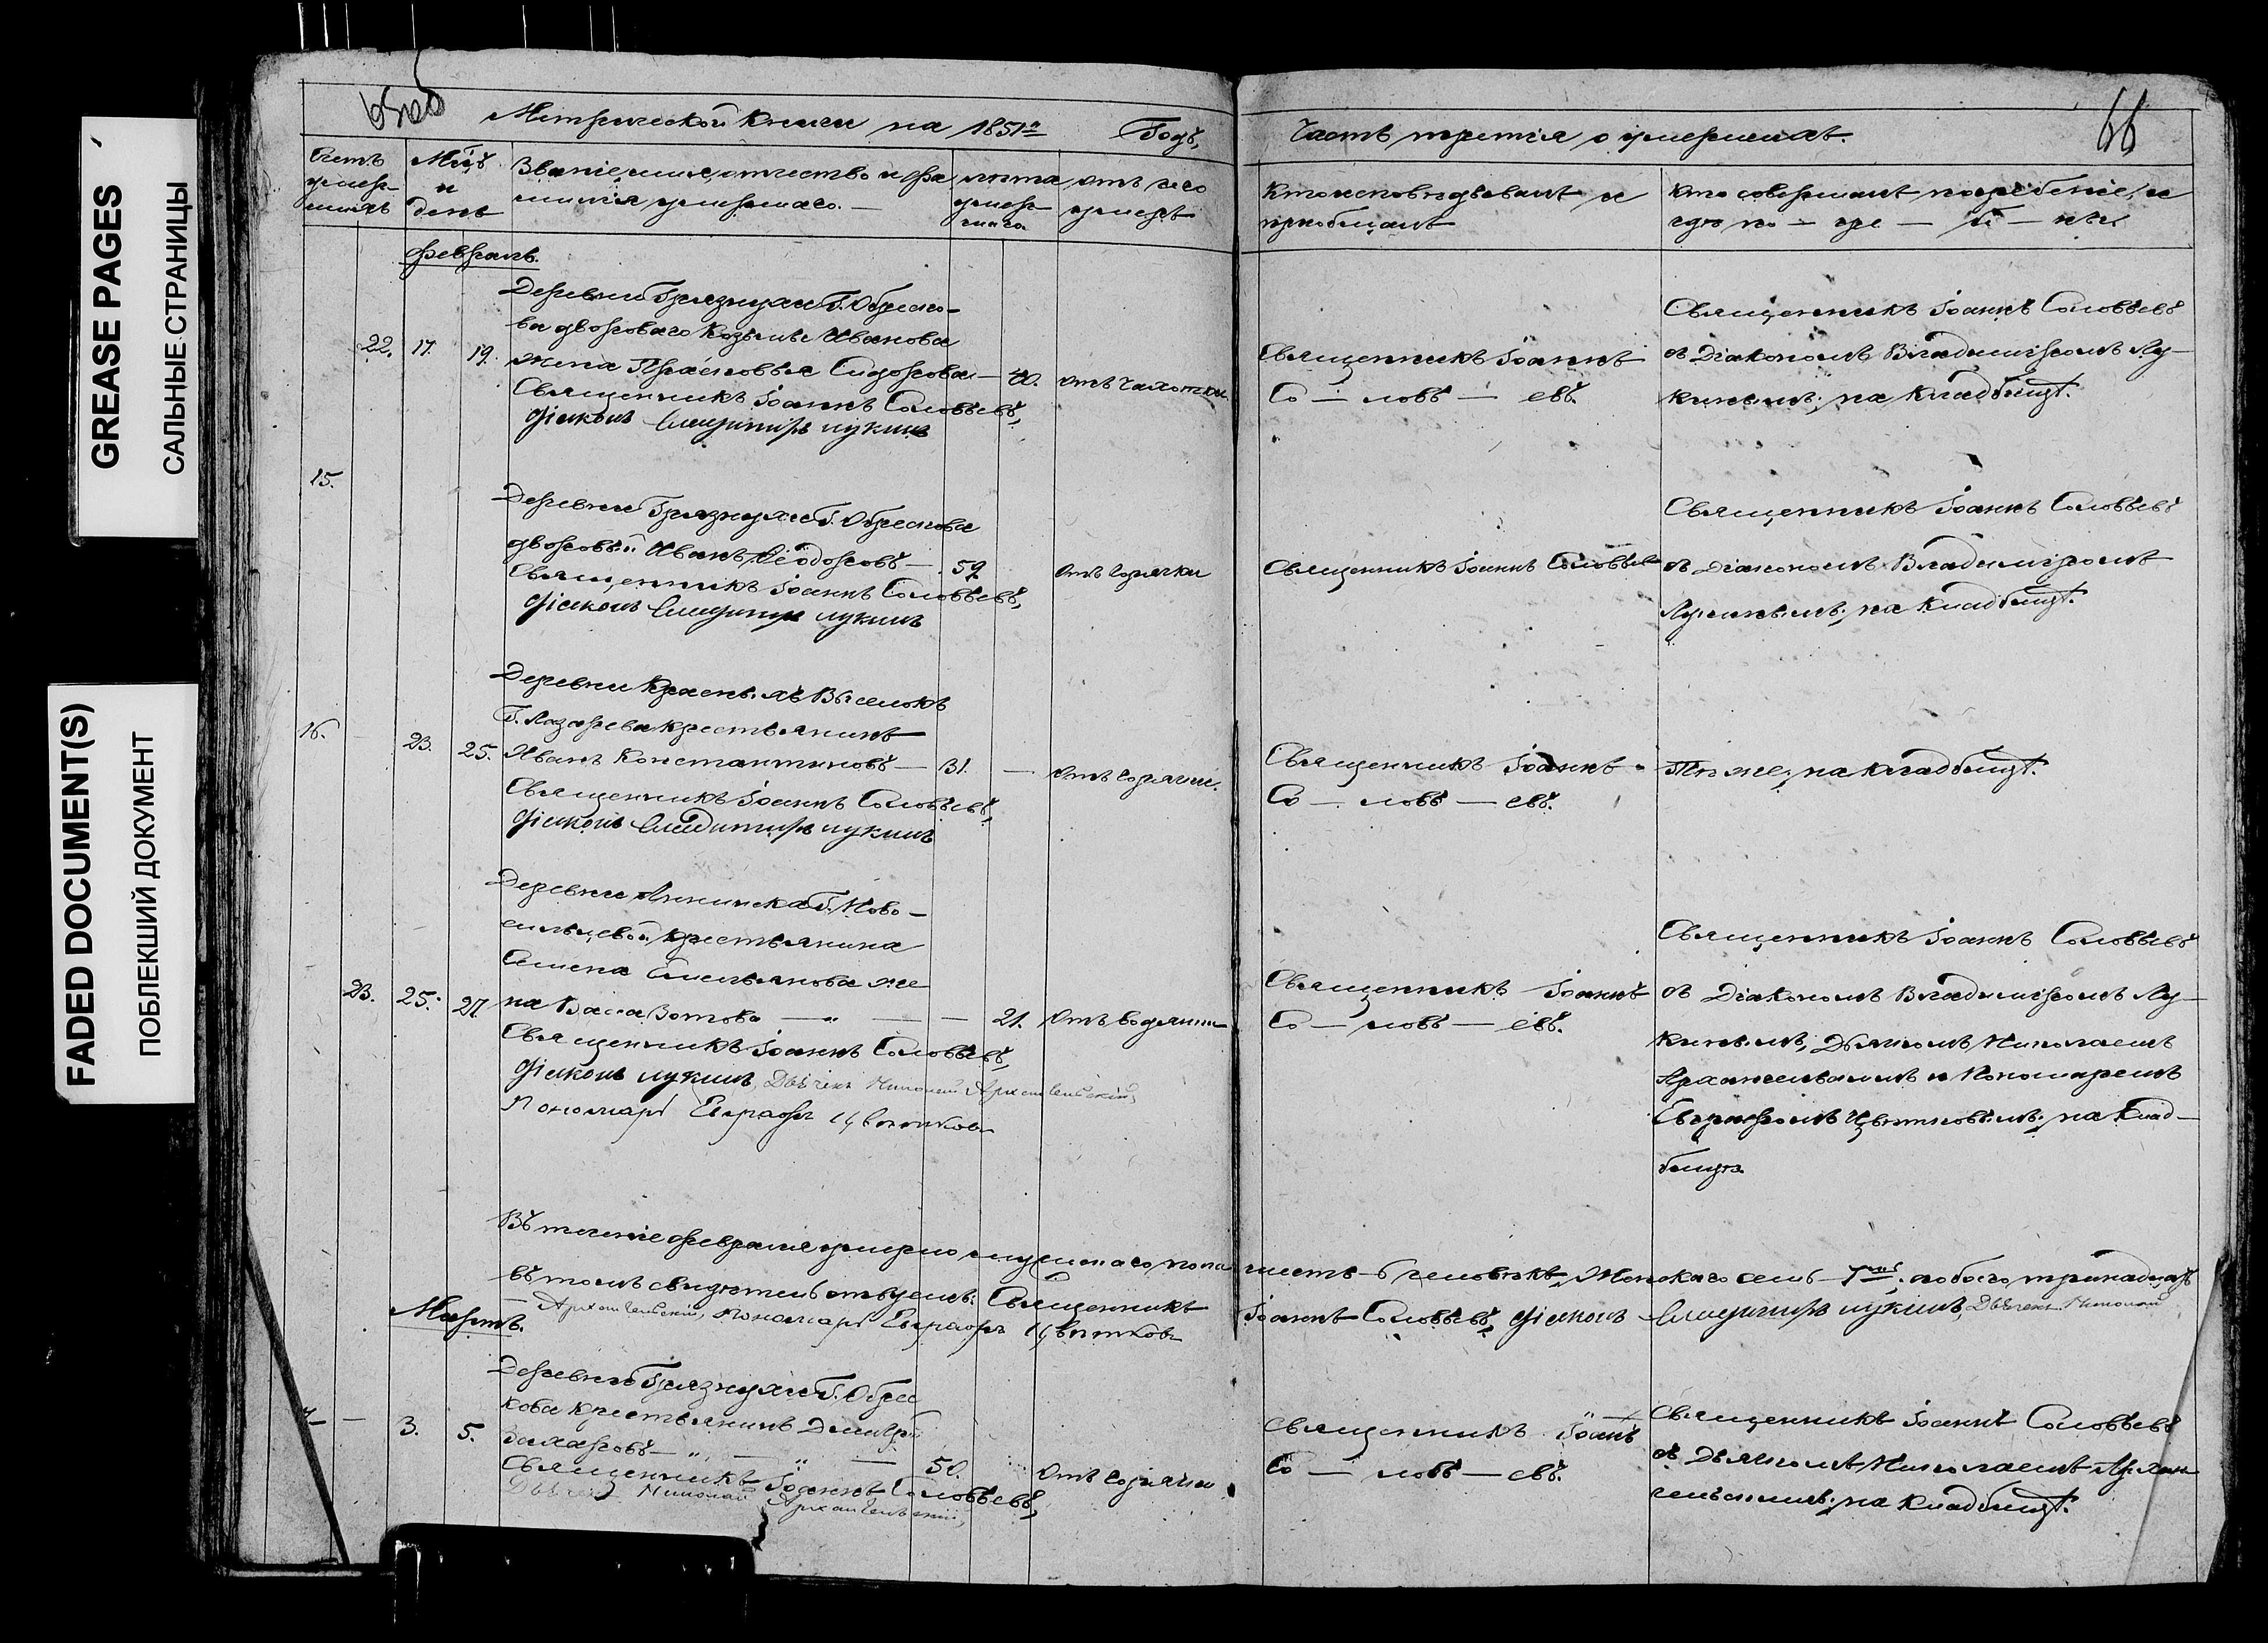 GREASE PAGES
САЛЬНЫЕ СТРАНИЦЫ
FADED DOCUMENT(S)
ПОБЛЕКШИЙ ДОКУМЕНТ
Метрической книги на 1851й Годъ,
Часть третія о умершихъ.
66
Счетъ умершихъ
Мѣцъ и день
Званіе, имя, отчество и фамилія умершаго. —
лѣта умершаго
отъ чего умеръ
кто исповѣдывалъ и пріобщалъ
кто совершалъ погребеніе, и гдѣ по — гре — бе — ны
Февраль.
22. 17. 19.
Деревни Грязнухи Г. Обреско-
ва двороваго Козьмы Иванова
жена Прасковья Сидорова — 40. отъ чахотки
Священникъ Іоаннъ Соловьевъ,
Діаконъ Владимиръ Лукинъ
Священникъ Іоаннъ
Со — ловь — евъ.
Священникъ Іоаннъ Соловьевъ
съ Діакономъ Владиміромъ Лу-
кинымъ, на кладбищѣ.
15.
Деревни Грязнухи Г. Обрескова
дворовый Иванъ Ѳеодоровъ — 59. отъ горячки
Священникъ Іоаннъ Соловьевъ,
Діаконъ Владимиръ Лукинъ
Священникъ Іоаннъ Соловьевъ
Священникъ Іоаннъ Соловьевъ
съ Діакономъ Владиміромъ
Лукинымъ, на кладбищѣ.
16. — 23. 25.
Деревни Красныхъ Выселокъ
Г. Лазарева крестьянинъ
Иванъ Константиновъ — 31. — отъ горячки.
Священникъ Іоаннъ Соловьевъ,
Діаконъ Владимиръ Лукинъ
Священникъ Іоаннъ
Со — ловь — евъ.
Тѣ же, на кладбищѣ.
23. 25. 27.
Деревни Аннинска Г. Ново-
сильцевой крестьянина
Семена Емельянова же
на Васса Зотова — „ — — 21. отъ водянки
Священникъ Іоаннъ Соловьевъ,
Діаконъ Лукинъ, Дьячекъ Николай Архангельскій,
Пономарь Евграфъ Цвѣтковъ
Священникъ Іоаннъ
Со — ловь — евъ.
Священникъ Іоаннъ Соловьевъ
съ Діакономъ Владиміромъ Лу-
кинымъ, Дьячкомъ Николаемъ
Архангельскимъ и Пономаремъ
Евграфомъ Цвѣтковымъ, на клад-
бищѣ.
Въ теченіе февраля умерло мужескаго пола шесть — 6 человѣкъ, Женскаго семь — 7 обоего тринадцать
въ томъ свидѣтельствуемъ: Священникъ Іоаннъ Соловьевъ, Діаконъ Владимиръ Лукинъ, Дьячекъ Николай
Архангельскій, Пономарь Евграфъ Цвѣтковъ
Мартъ.
— 3. 5.
Деревни Грязнухи Г. Обрес
кова крестьянинъ Димитрій
Захаровъ — „ — „ — 50. отъ горячки
Священникъ Іоаннъ Соловьевъ,
Дьячекъ Николай Архангельскій,
Священникъ Іоаннъ
Со — ловь — евъ.
Священникъ Іоаннъ Соловьевъ
съ Дьячкомъ Николаемъ Архан
гельскимъ, на кладбищѣ.